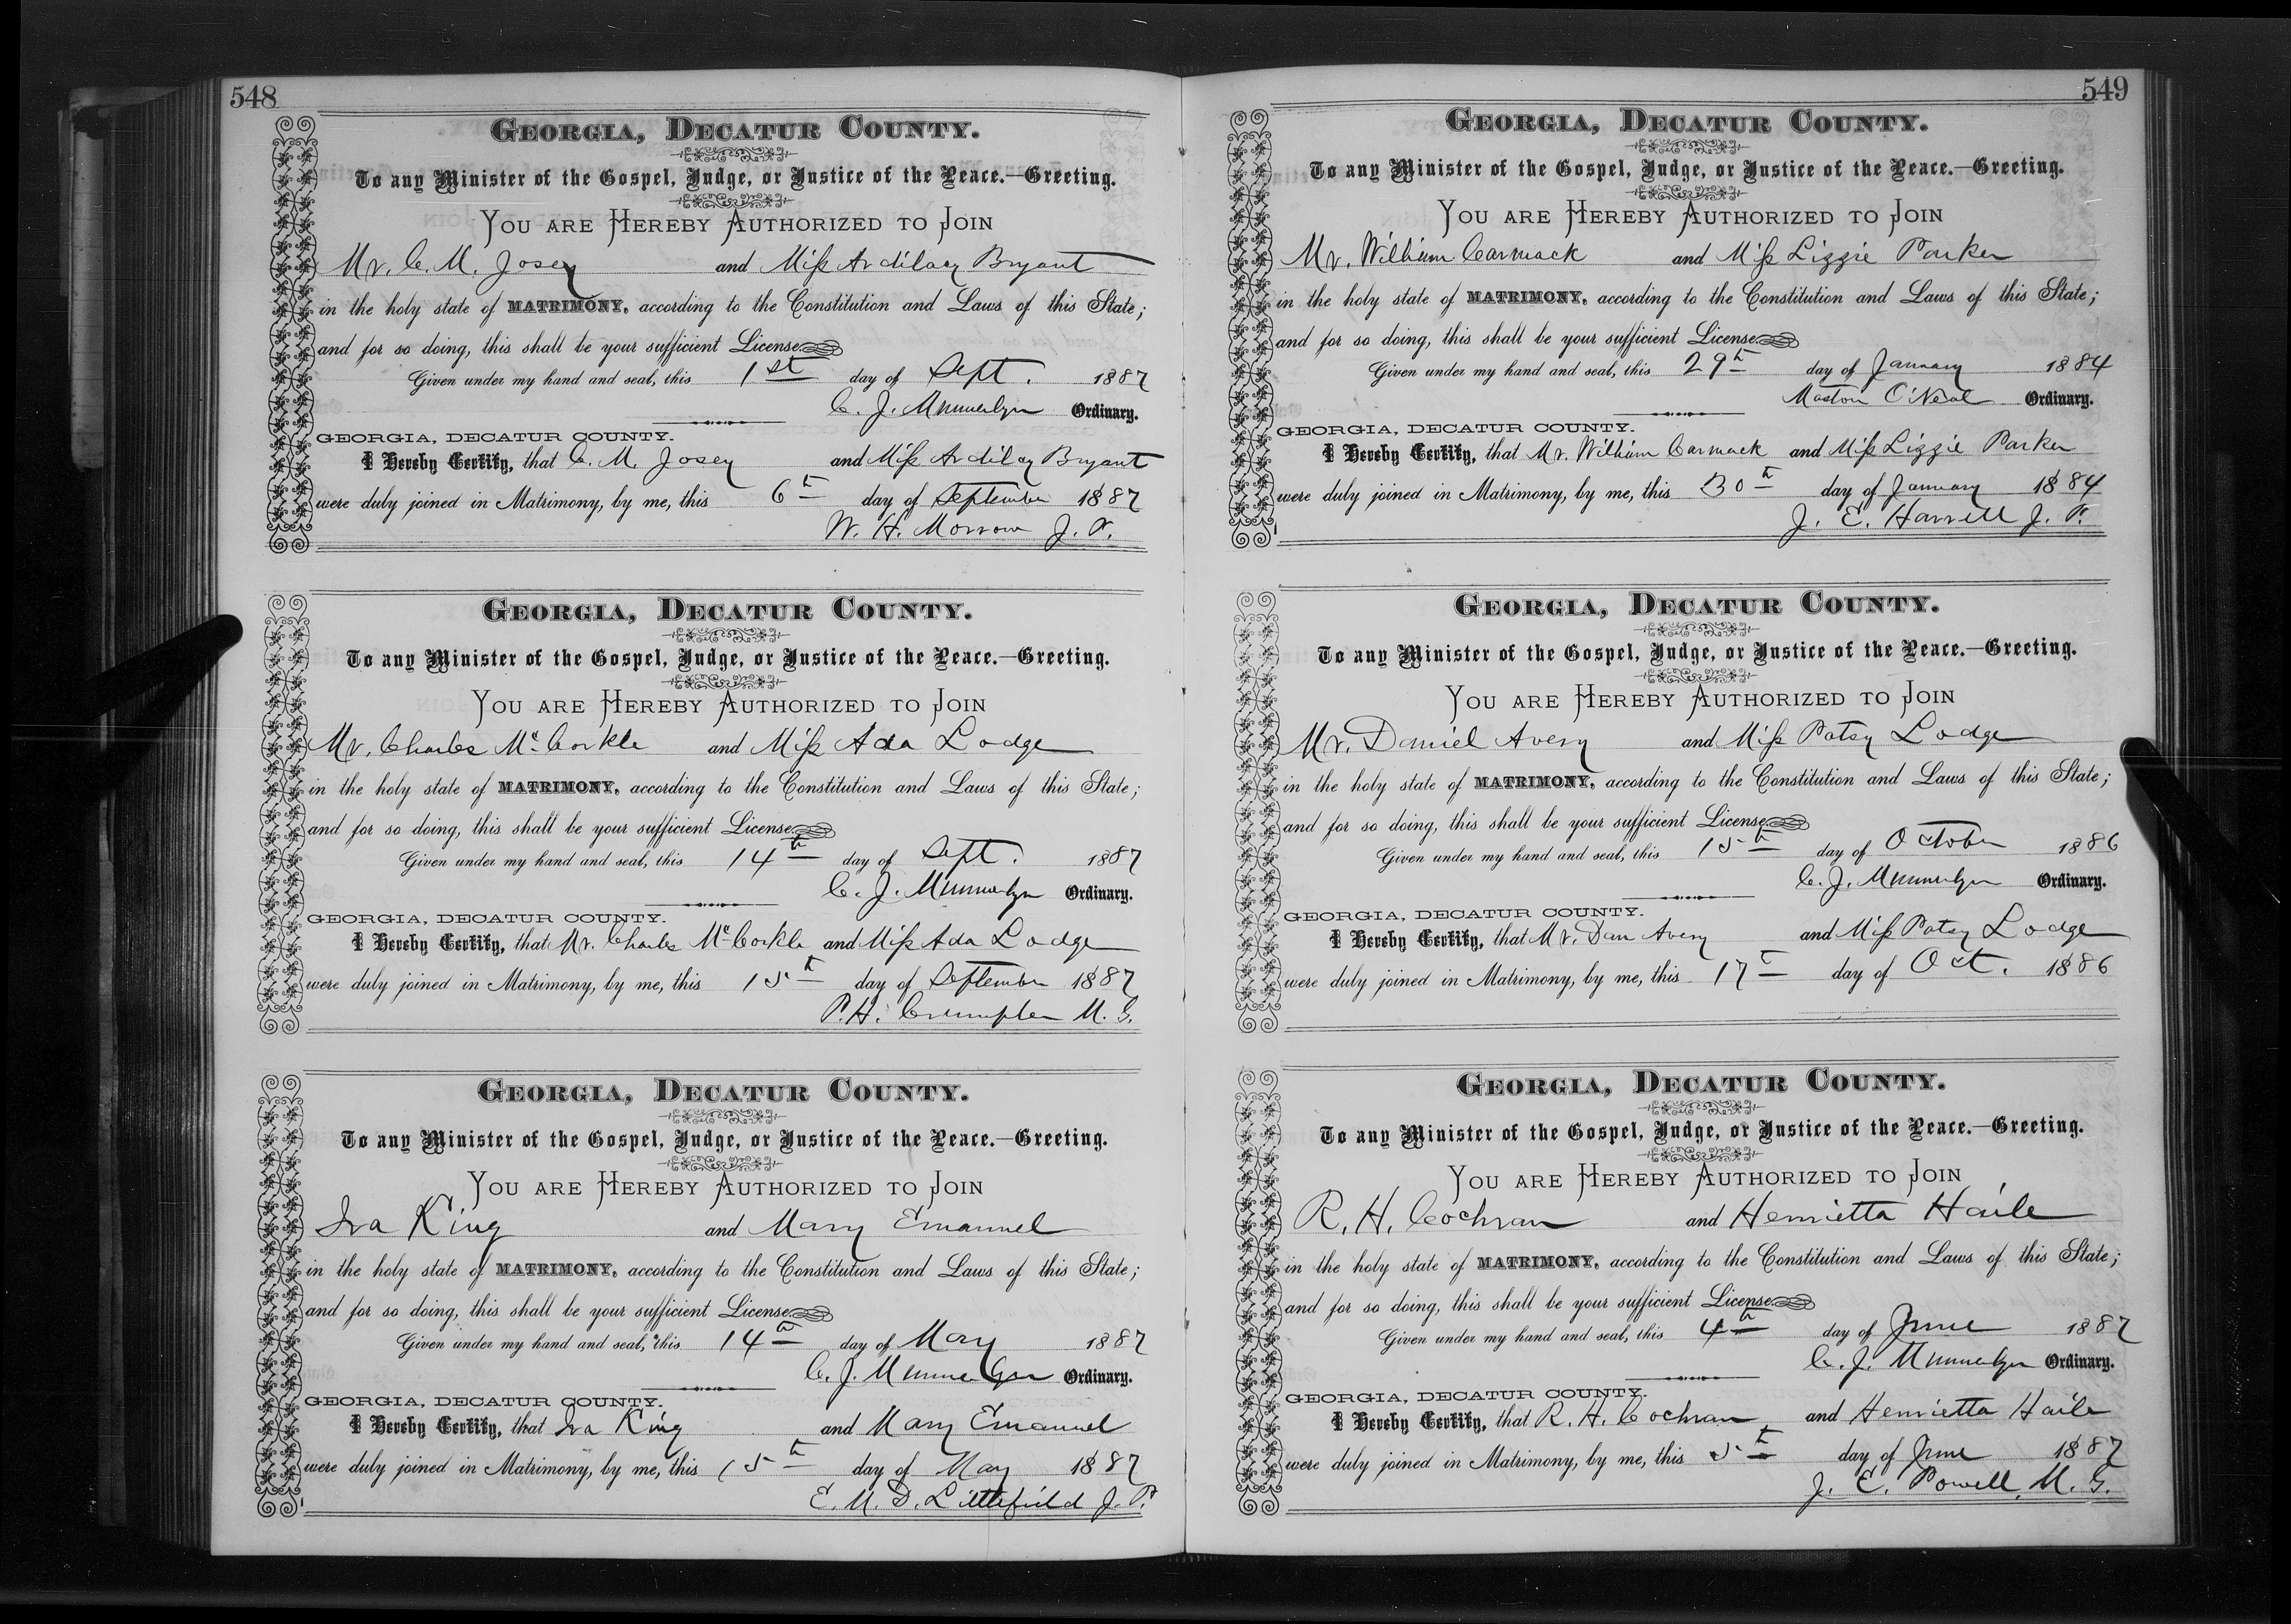 548
GEORGIA, DECATUR COUNTY.
To any Minister of the Gospel, Judge, or Justice of the Peace.—Greeting.
YOU ARE HEREBY AUTHORIZED TO JOIN
Mr. C. M. Josey and Miss Ardilacy Bryant
in the holy state of MATRIMONY, according to the Constitution and Laws of this State;
and for so doing, this shall be your sufficient License.
Given under my hand and seal, this 1st day of Sept. 1887
C. J. Munnerlyn Ordinary.
GEORGIA, DECATUR COUNTY.
I Hereby Certify, that C. M. Josey and Miss Ardilacy Bryant
were duly joined in Matrimony, by me, this 6th day of September 1887
W. H. Morrow J. P.
GEORGIA, DECATUR COUNTY.
To any Minister of the Gospel, Judge, or Justice of the Peace.—Greeting.
YOU ARE HEREBY AUTHORIZED TO JOIN
Mr. Charles McCorkle and Miss Ada Lodge
in the holy state of MATRIMONY, according to the Constitution and Laws of this State;
and for so doing, this shall be your sufficient License.
Given under my hand and seal, this 14th day of Sept. 1887
C. J. Munnerlyn Ordinary.
GEORGIA, DECATUR COUNTY.
I Hereby Certify, that Mr. Charles McCorkle and Miss Ada Lodge
were duly joined in Matrimony, by me, this 15th day of September 1887
P. H. Crumpler M. G.
GEORGIA, DECATUR COUNTY.
To any Minister of the Gospel, Judge, or Justice of the Peace.—Greeting.
YOU ARE HEREBY AUTHORIZED TO JOIN
Ira King and Mary Emanuel
in the holy state of MATRIMONY, according to the Constitution and Laws of this State;
and for so doing, this shall be your sufficient License.
Given under my hand and seal, this 14th day of May 1887
C. J. Munnerlyn Ordinary.
GEORGIA, DECATUR COUNTY.
I Hereby Certify, that Ira King and Mary Emanuel
were duly joined in Matrimony, by me, this 15th day of May 1887
E. M. D. Littlefield J. P.
549
GEORGIA, DECATUR COUNTY.
To any Minister of the Gospel, Judge, or Justice of the Peace.—Greeting.
YOU ARE HEREBY AUTHORIZED TO JOIN
Mr. William Carmack and Miss Lizzie Parker
in the holy state of MATRIMONY, according to the Constitution and Laws of this State;
and for so doing, this shall be your sufficient License.
Given under my hand and seal, this 29th day of January 1884
Maston O'Neal Ordinary.
GEORGIA, DECATUR COUNTY.
I Hereby Certify, that Mr. William Carmack and Miss Lizzie Parker
were duly joined in Matrimony, by me, this 30th day of January 1884
J. E. Harrell J. P.
GEORGIA, DECATUR COUNTY.
To any Minister of the Gospel, Judge, or Justice of the Peace.—Greeting.
YOU ARE HEREBY AUTHORIZED TO JOIN
Mr. Daniel Avery and Miss Patsy Lodge
in the holy state of MATRIMONY, according to the Constitution and Laws of this State;
and for so doing, this shall be your sufficient License.
Given under my hand and seal, this 15th day of October 1886
C. J. Munnerlyn Ordinary.
GEORGIA, DECATUR COUNTY.
I Hereby Certify, that Mr. Dan Avery and Miss Patsy Lodge
were duly joined in Matrimony, by me, this 17th day of Oct. 1886
GEORGIA, DECATUR COUNTY.
To any Minister of the Gospel, Judge, or Justice of the Peace.—Greeting.
YOU ARE HEREBY AUTHORIZED TO JOIN
R. H. Cochran and Henrietta Haile
in the holy state of MATRIMONY, according to the Constitution and Laws of this State;
and for so doing, this shall be your sufficient License.
Given under my hand and seal, this 4th day of June 1887
C. J. Munnerlyn Ordinary.
GEORGIA, DECATUR COUNTY.
I Hereby Certify, that R. H. Cochran and Henrietta Haile
were duly joined in Matrimony, by me, this 5th day of June 1887
J. E. Powell, M. G.